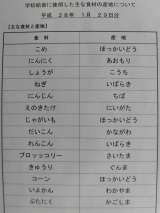 学校給食に使用した主な食材の産地について
平成 28年 1月 29日分
【主な食材と産地】
食材 産地
こめ ほっかいどう
にんにく あおもり
しょうが こうち
ねぎ いばらき
にんじん ちば
えのきたけ にいがた
じゃがいも ほっかいどう
だいこん かながわ
れんこん いばらき
ブロッコリー さいたま
きゅうり ぐんま
コーン ほっかいどう
いよかん わかやま
ぶたにく かごしま